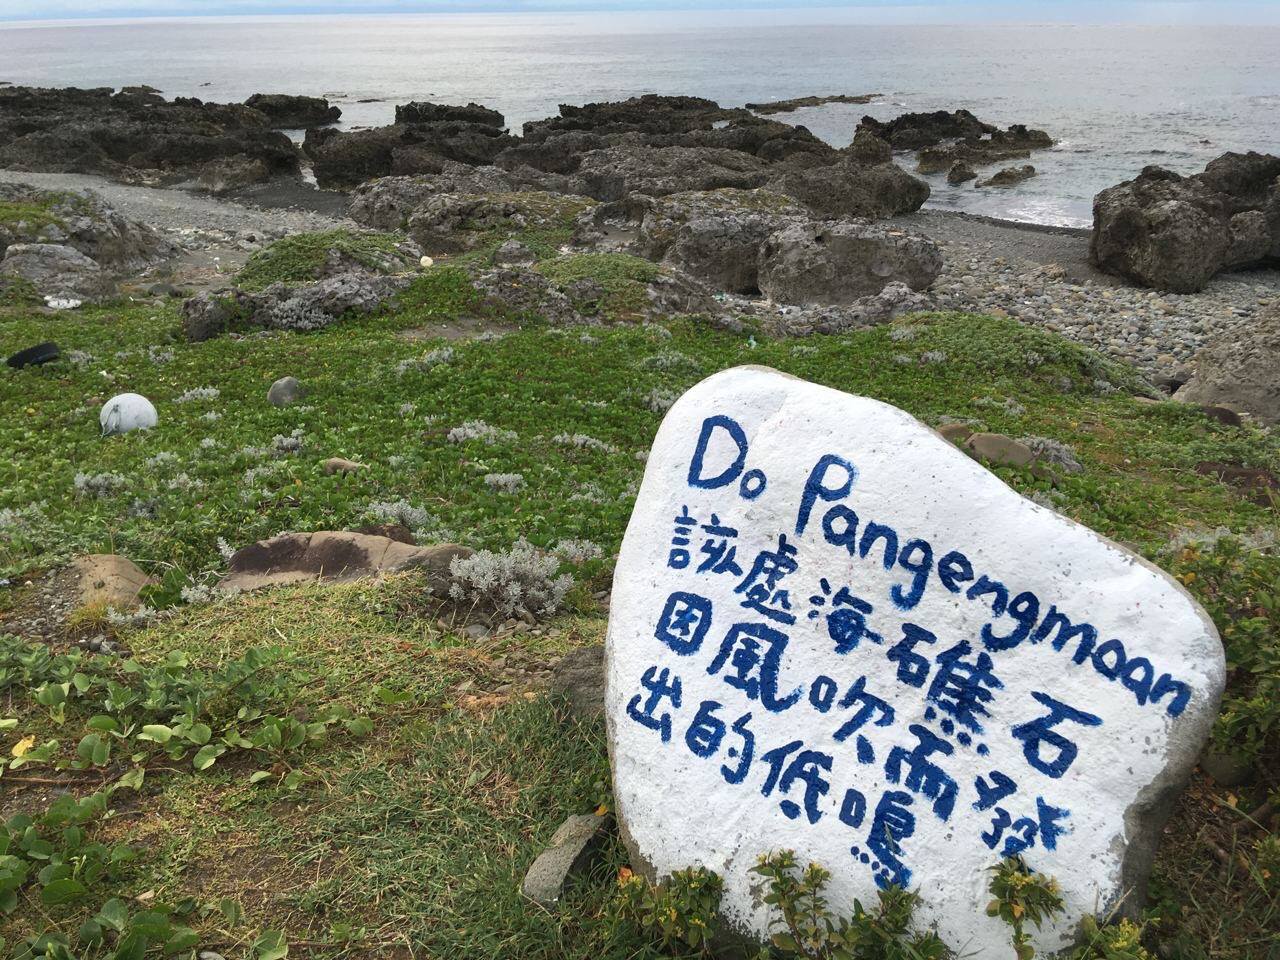 Do Pangengmoan
該處海石礁石
因風吹而發
出的低鳴